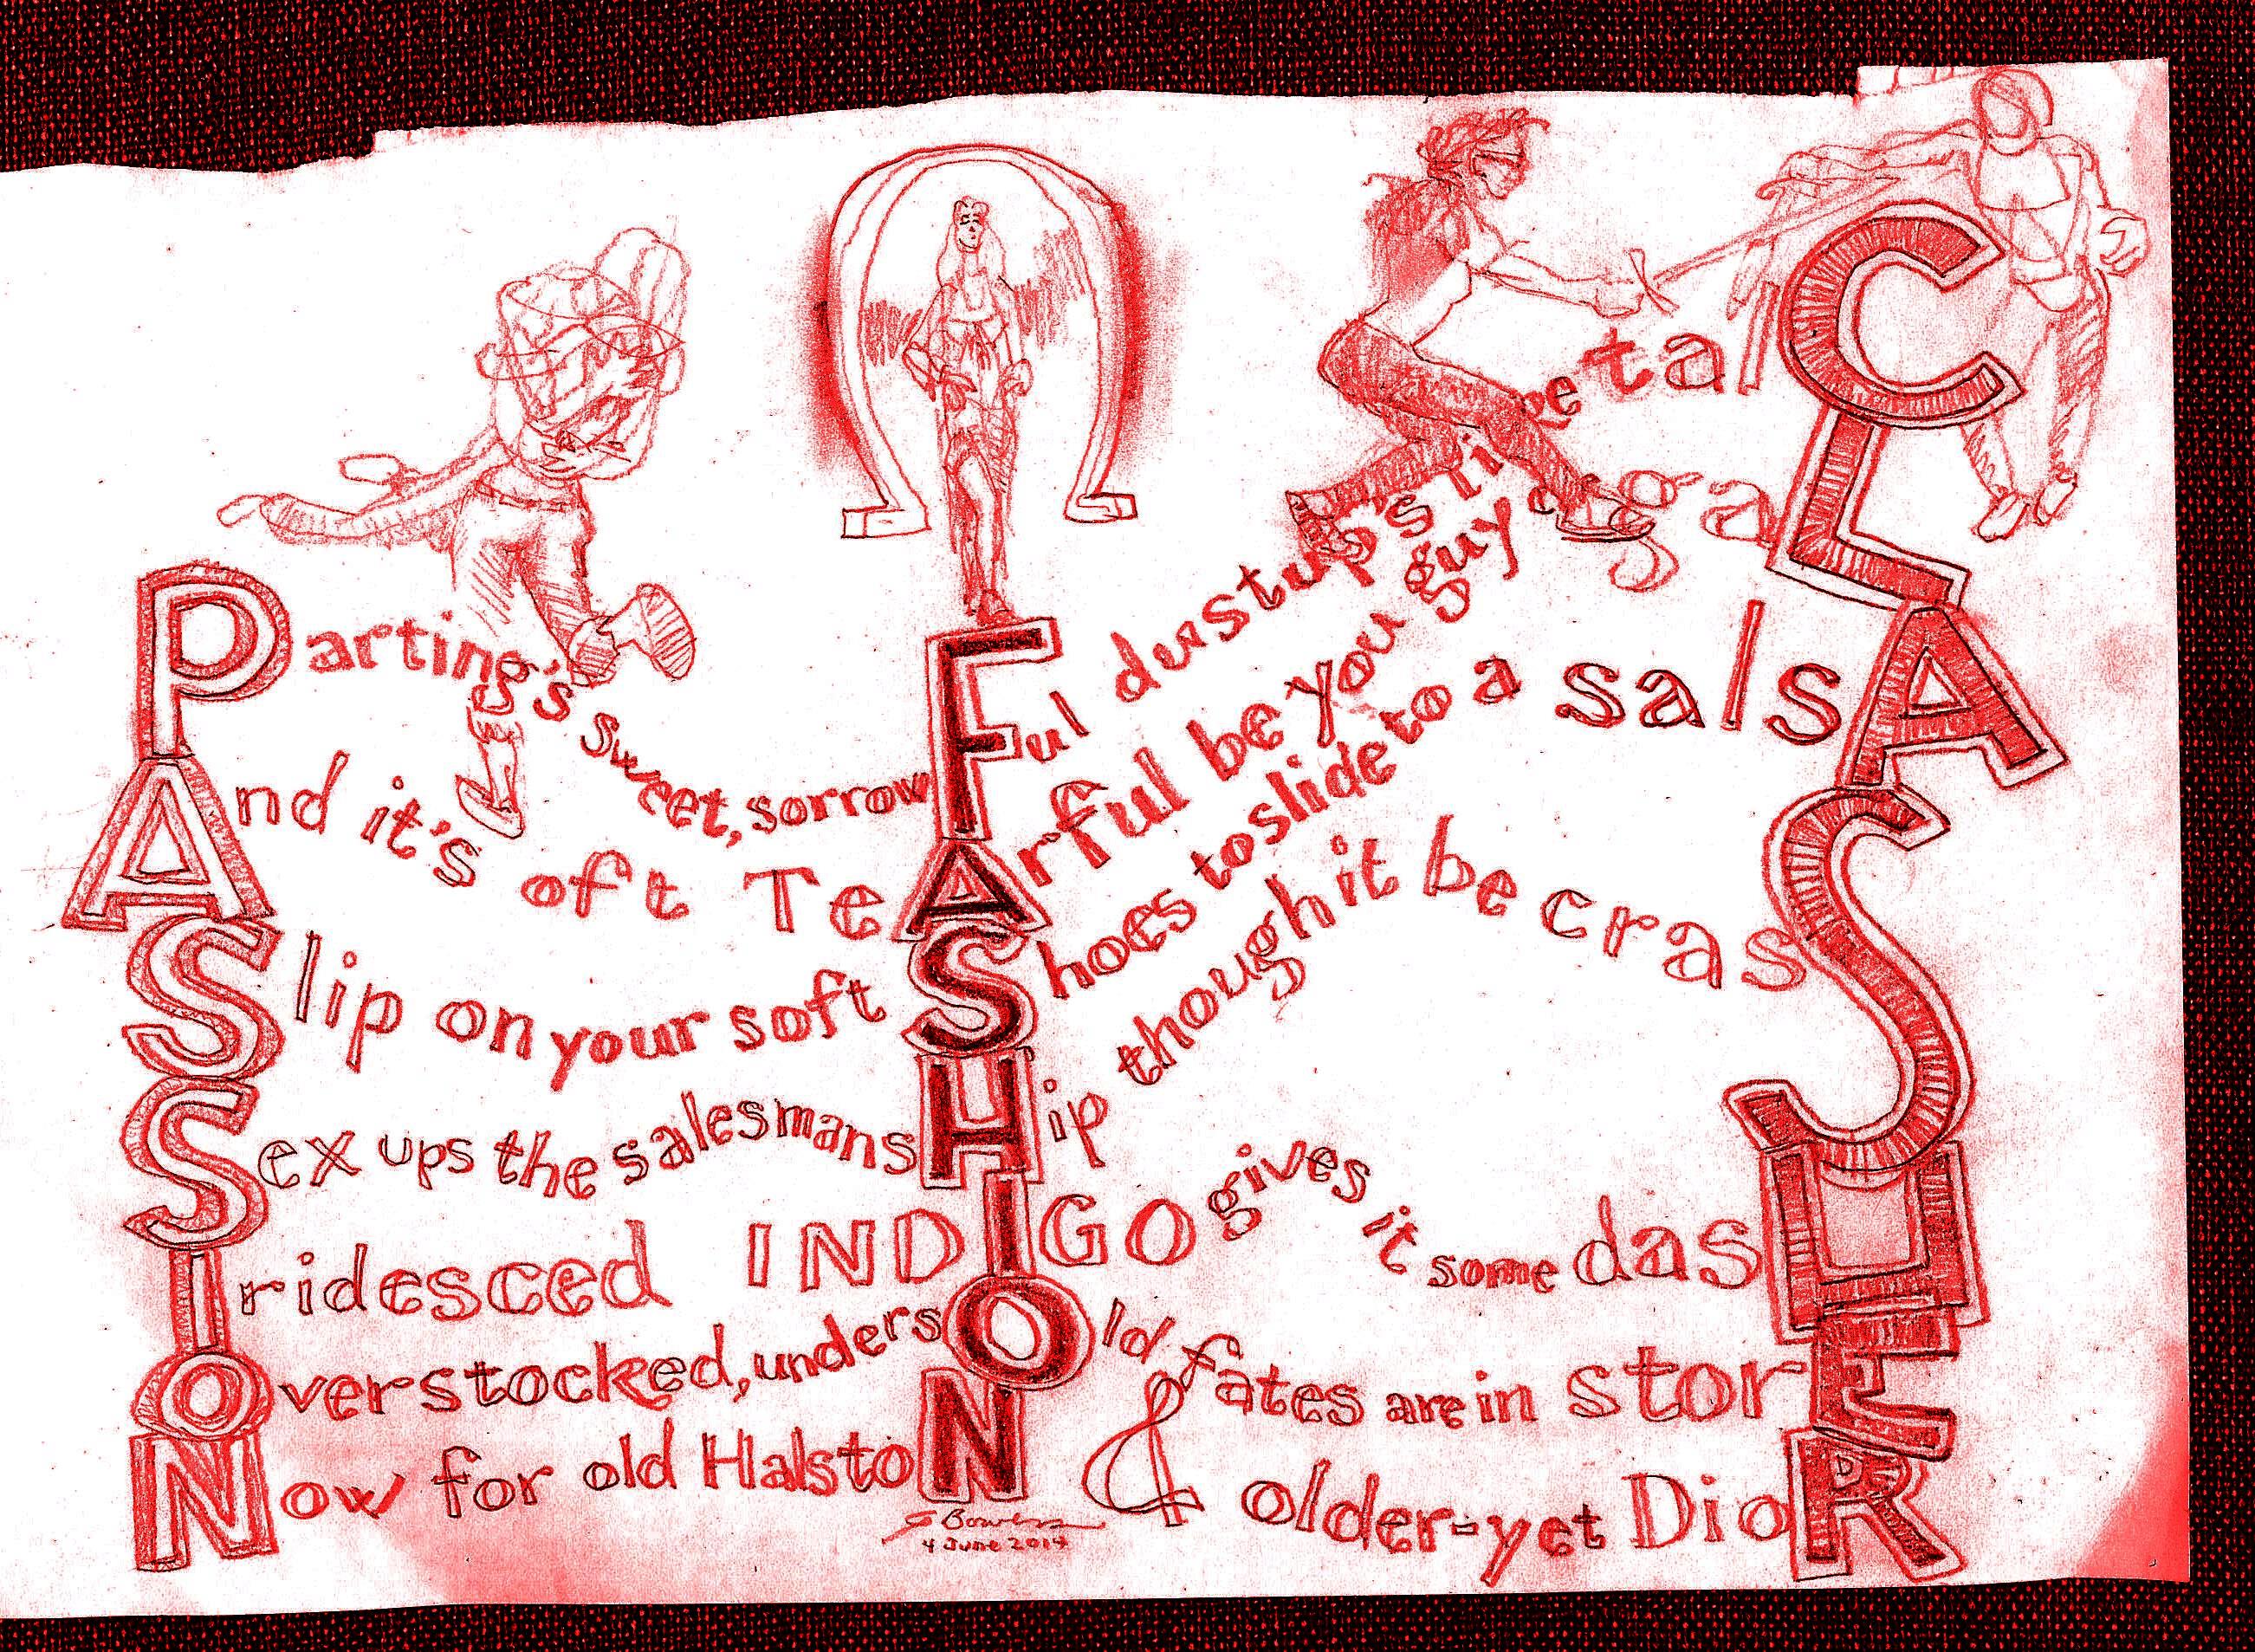 Parting's sweet, sorrowFul dustup's talC
And it's oft TeArful be you guy or gaL
Slip on your soft Shoes to slide to a salsA
Sex ups the salesmansHip though it be crasS
Iridesced INDIGO gives it some dasH
Overstocked, undersOld fates are in storE
Now for old HalstoN & older-yet DioR
4 June 2014